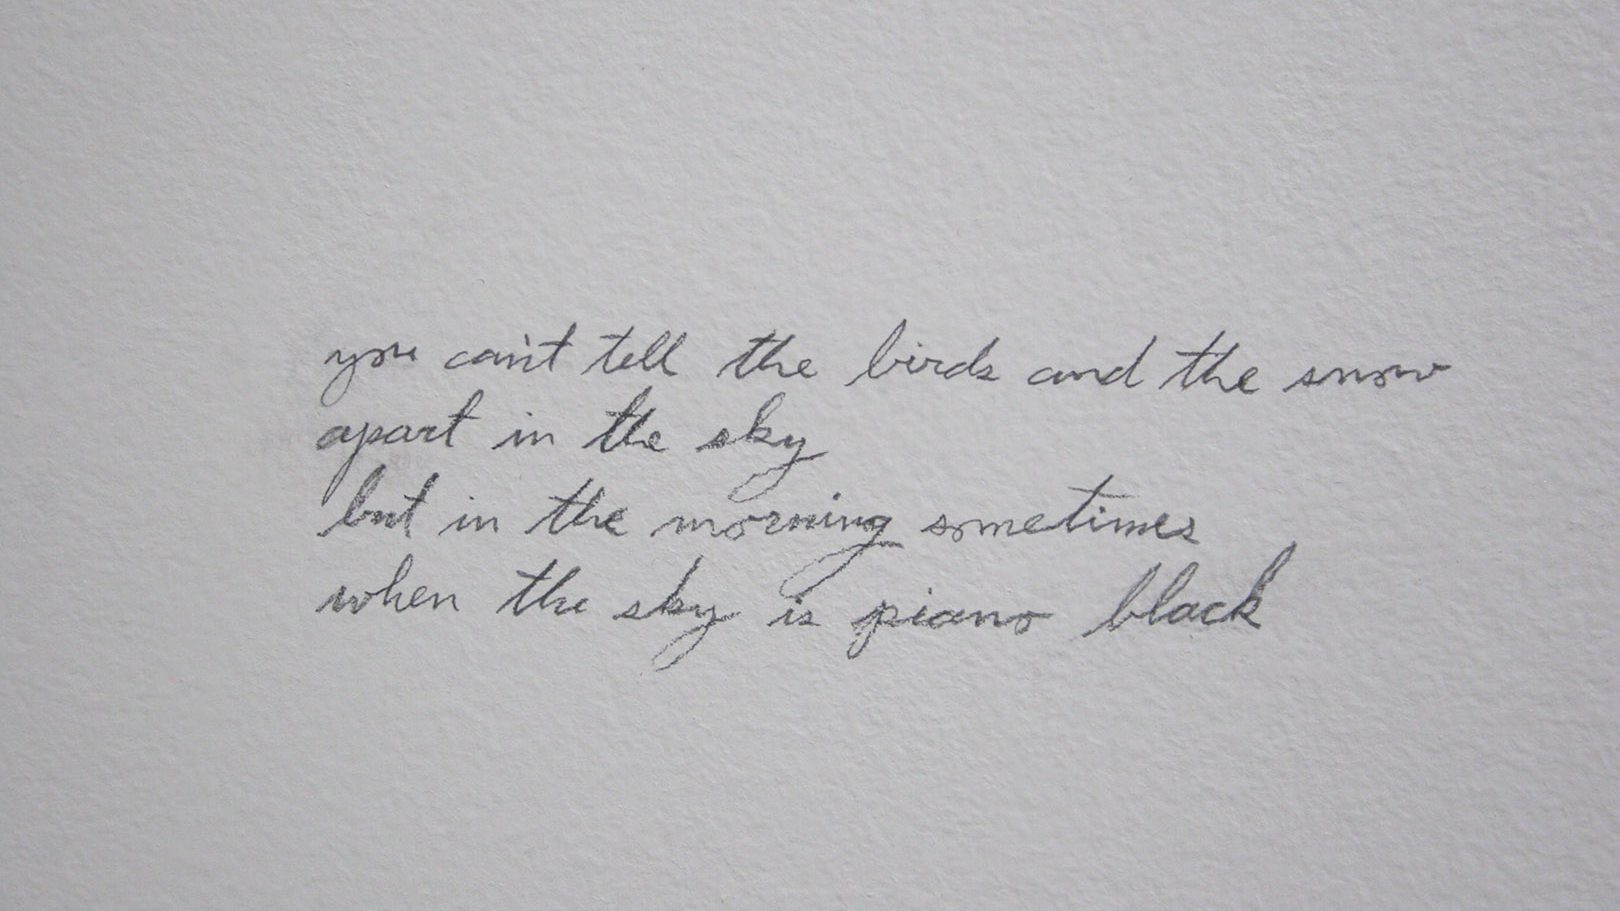 you can't tell the birds and the snow
apart in the sky
but in the morning sometimes
when the sky is piano black